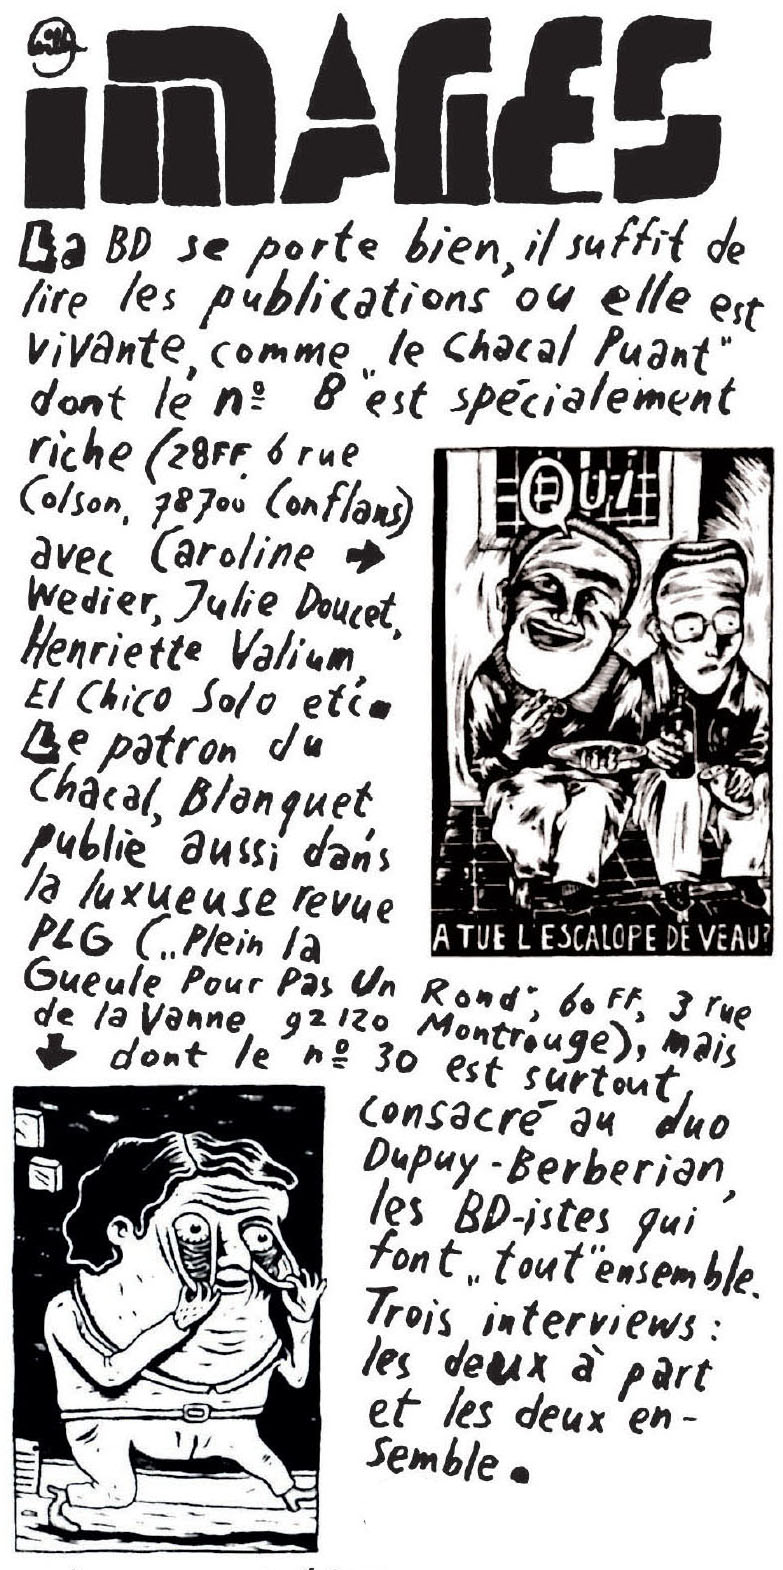 iMAGES
La BD se porte bien, il suffit de
lire les publications ou elle est
vivante, comme „le Chacal Puant"
dont le nº 8 est spécialement
riche (28FF, 6 rue
Colson, 78700 Conflans)
avec Caroline ➔
Wedier, Julie Doucet,
Henriette Valium,
El Chico Solo etc.
Le patron du
Chacal, Blanquet,
publie aussi dans
la luxueuse revue
PLG („Plein la
Gueule Pour Pas Un Rond", 60 FF, 3 rue
de la Vanne 92120 Montrouge), mais
dont le nº 30 est surtout
consacré au duo
Dupuy-Berberian,
les BD-istes qui
font „tout" ensemble.
Trois interviews :
les deux à part
et les deux en-
semble.
QUI
A TUE L'ESCALOPE DE VEAU?